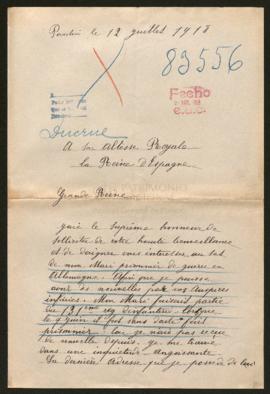 Pantin le 12 juillet 1918
83556
Fecha
Ducrue
A son Altesse Royale
la Reine d'Espagne
Grande Reine
j'ai le suprême honneur de
solliciter de votre haute bienveillance
et de daigner vous intéresser au sort
de mon Mari prisonnier de guerre en
Allemagne. Afin que je puisse
avoir de ses nouvelles par vos auspices
infinies. Mon Mari faisait partie
du 121eme reg d'infanterie lorsque
le 9 juin il fut sans doute fait
prisonnier car je n'ai pas reçue
de nouvelle depuis. je me trouve
dans une inquiétude angoissante
La dernière adresse que je possède de lui